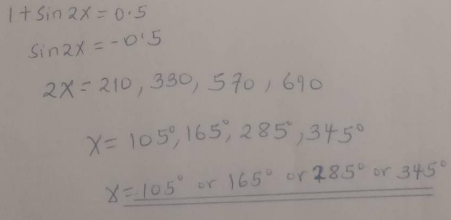 1+sin2x=0.5
sin2x=-0.5
2x=210, 330, 570, 690
x=105°, 165°, 285°, 345°
x=105° or 165° or 285° or 345°